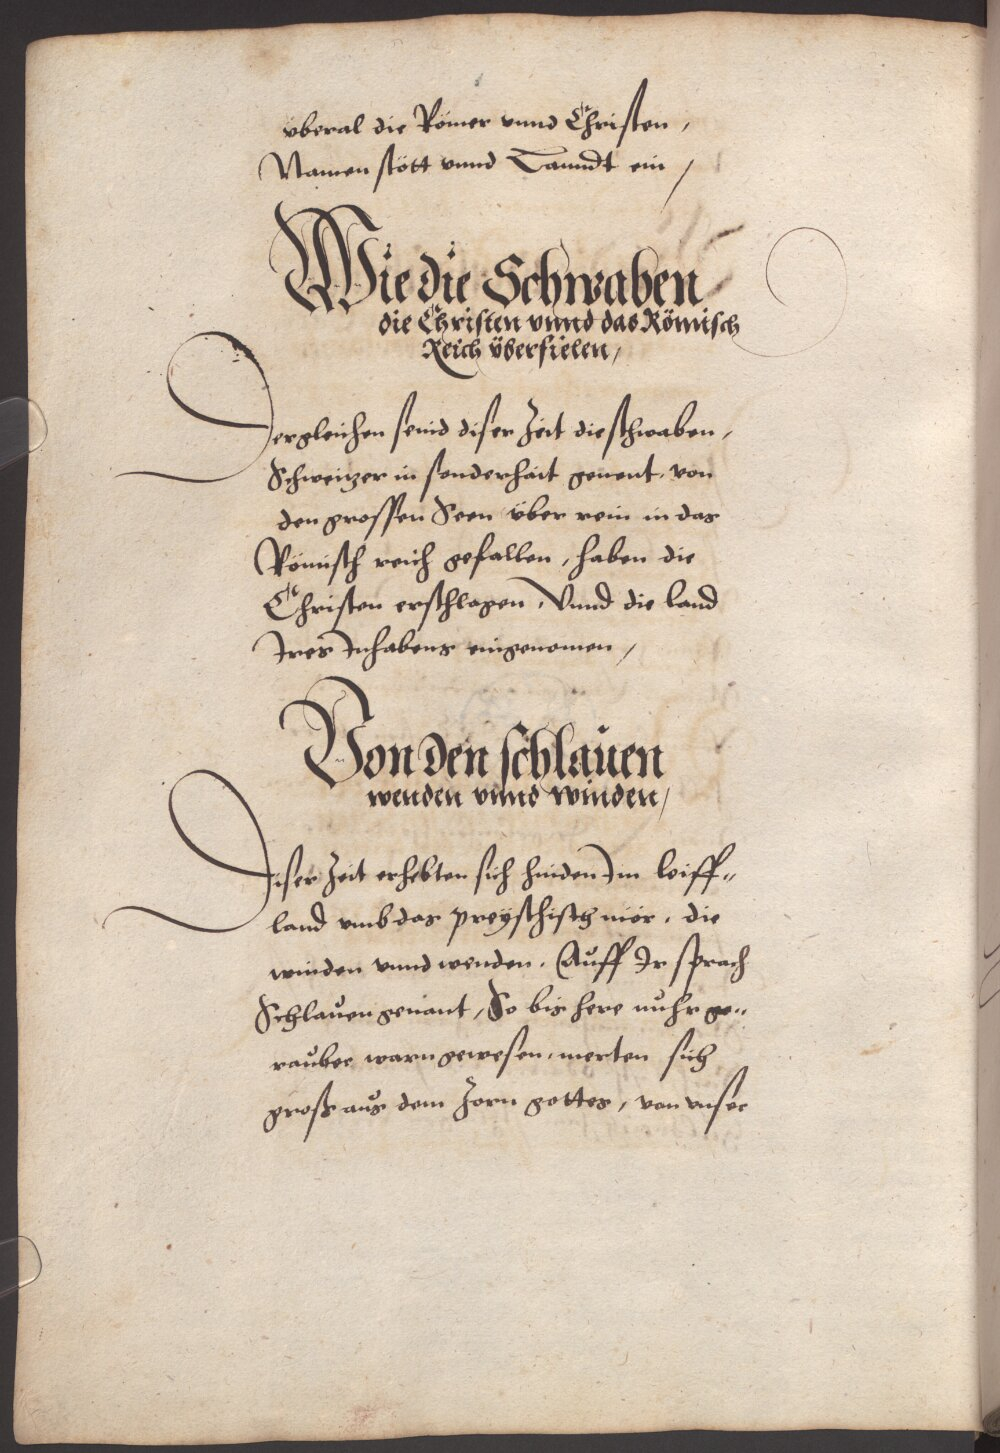 überal die Römer vnnd Christen,
Namen stött vnnd Lanndt ein /
Wie die Schwaben
die Christen vnnd das Römisch
Reich überfielen /
Dergleichen seind diser Zeit die schwaben,
Schweitzer in sonderhait genent, von
den grossen Seen über rein in das
Römisch reich gefallen, haben die
Christen erschlagen, Vnnd die land
Jres Jnhabens eingenomen /
Von den schlauen
wenden vnnd winden /
Diser Zeit erhebten sich hinden Jm leiff„
land vmb das preyschisch mör, die
winden vnnd wenden. Auff Jr sprach
Schlauen genant, So bis here nuhr ge„
rauber warn gewesen, merten sich
groß aus dem Zorn gottes, von vnser